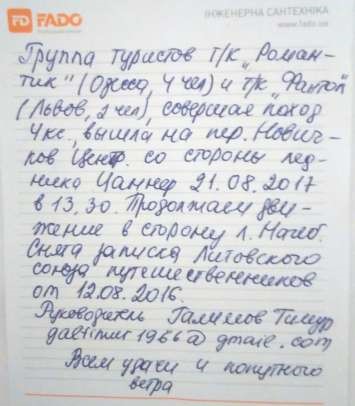 FADO
ІНЖЕНЕРНА САНТЕХНІКА
www.fado.ua
Группа туристов т/к „Роман-
тик" (Одесса, 4 чел) и т/к „Фантом"
(Львов, 2 чел), совершая поход
4кс, вышла на пер. Нович-
ков Центр. со стороны лед-
ника Цаннер 21.08.2017
в 13.30. Продолжаем дви-
жение в сторону л. Нагеб.
Снята записка Литовского
союза путешественников
от 12.08.2016.
Руководитель Галимов Тимур
galtimur1966@gmail.com
Всем удачи и попутного
ветра